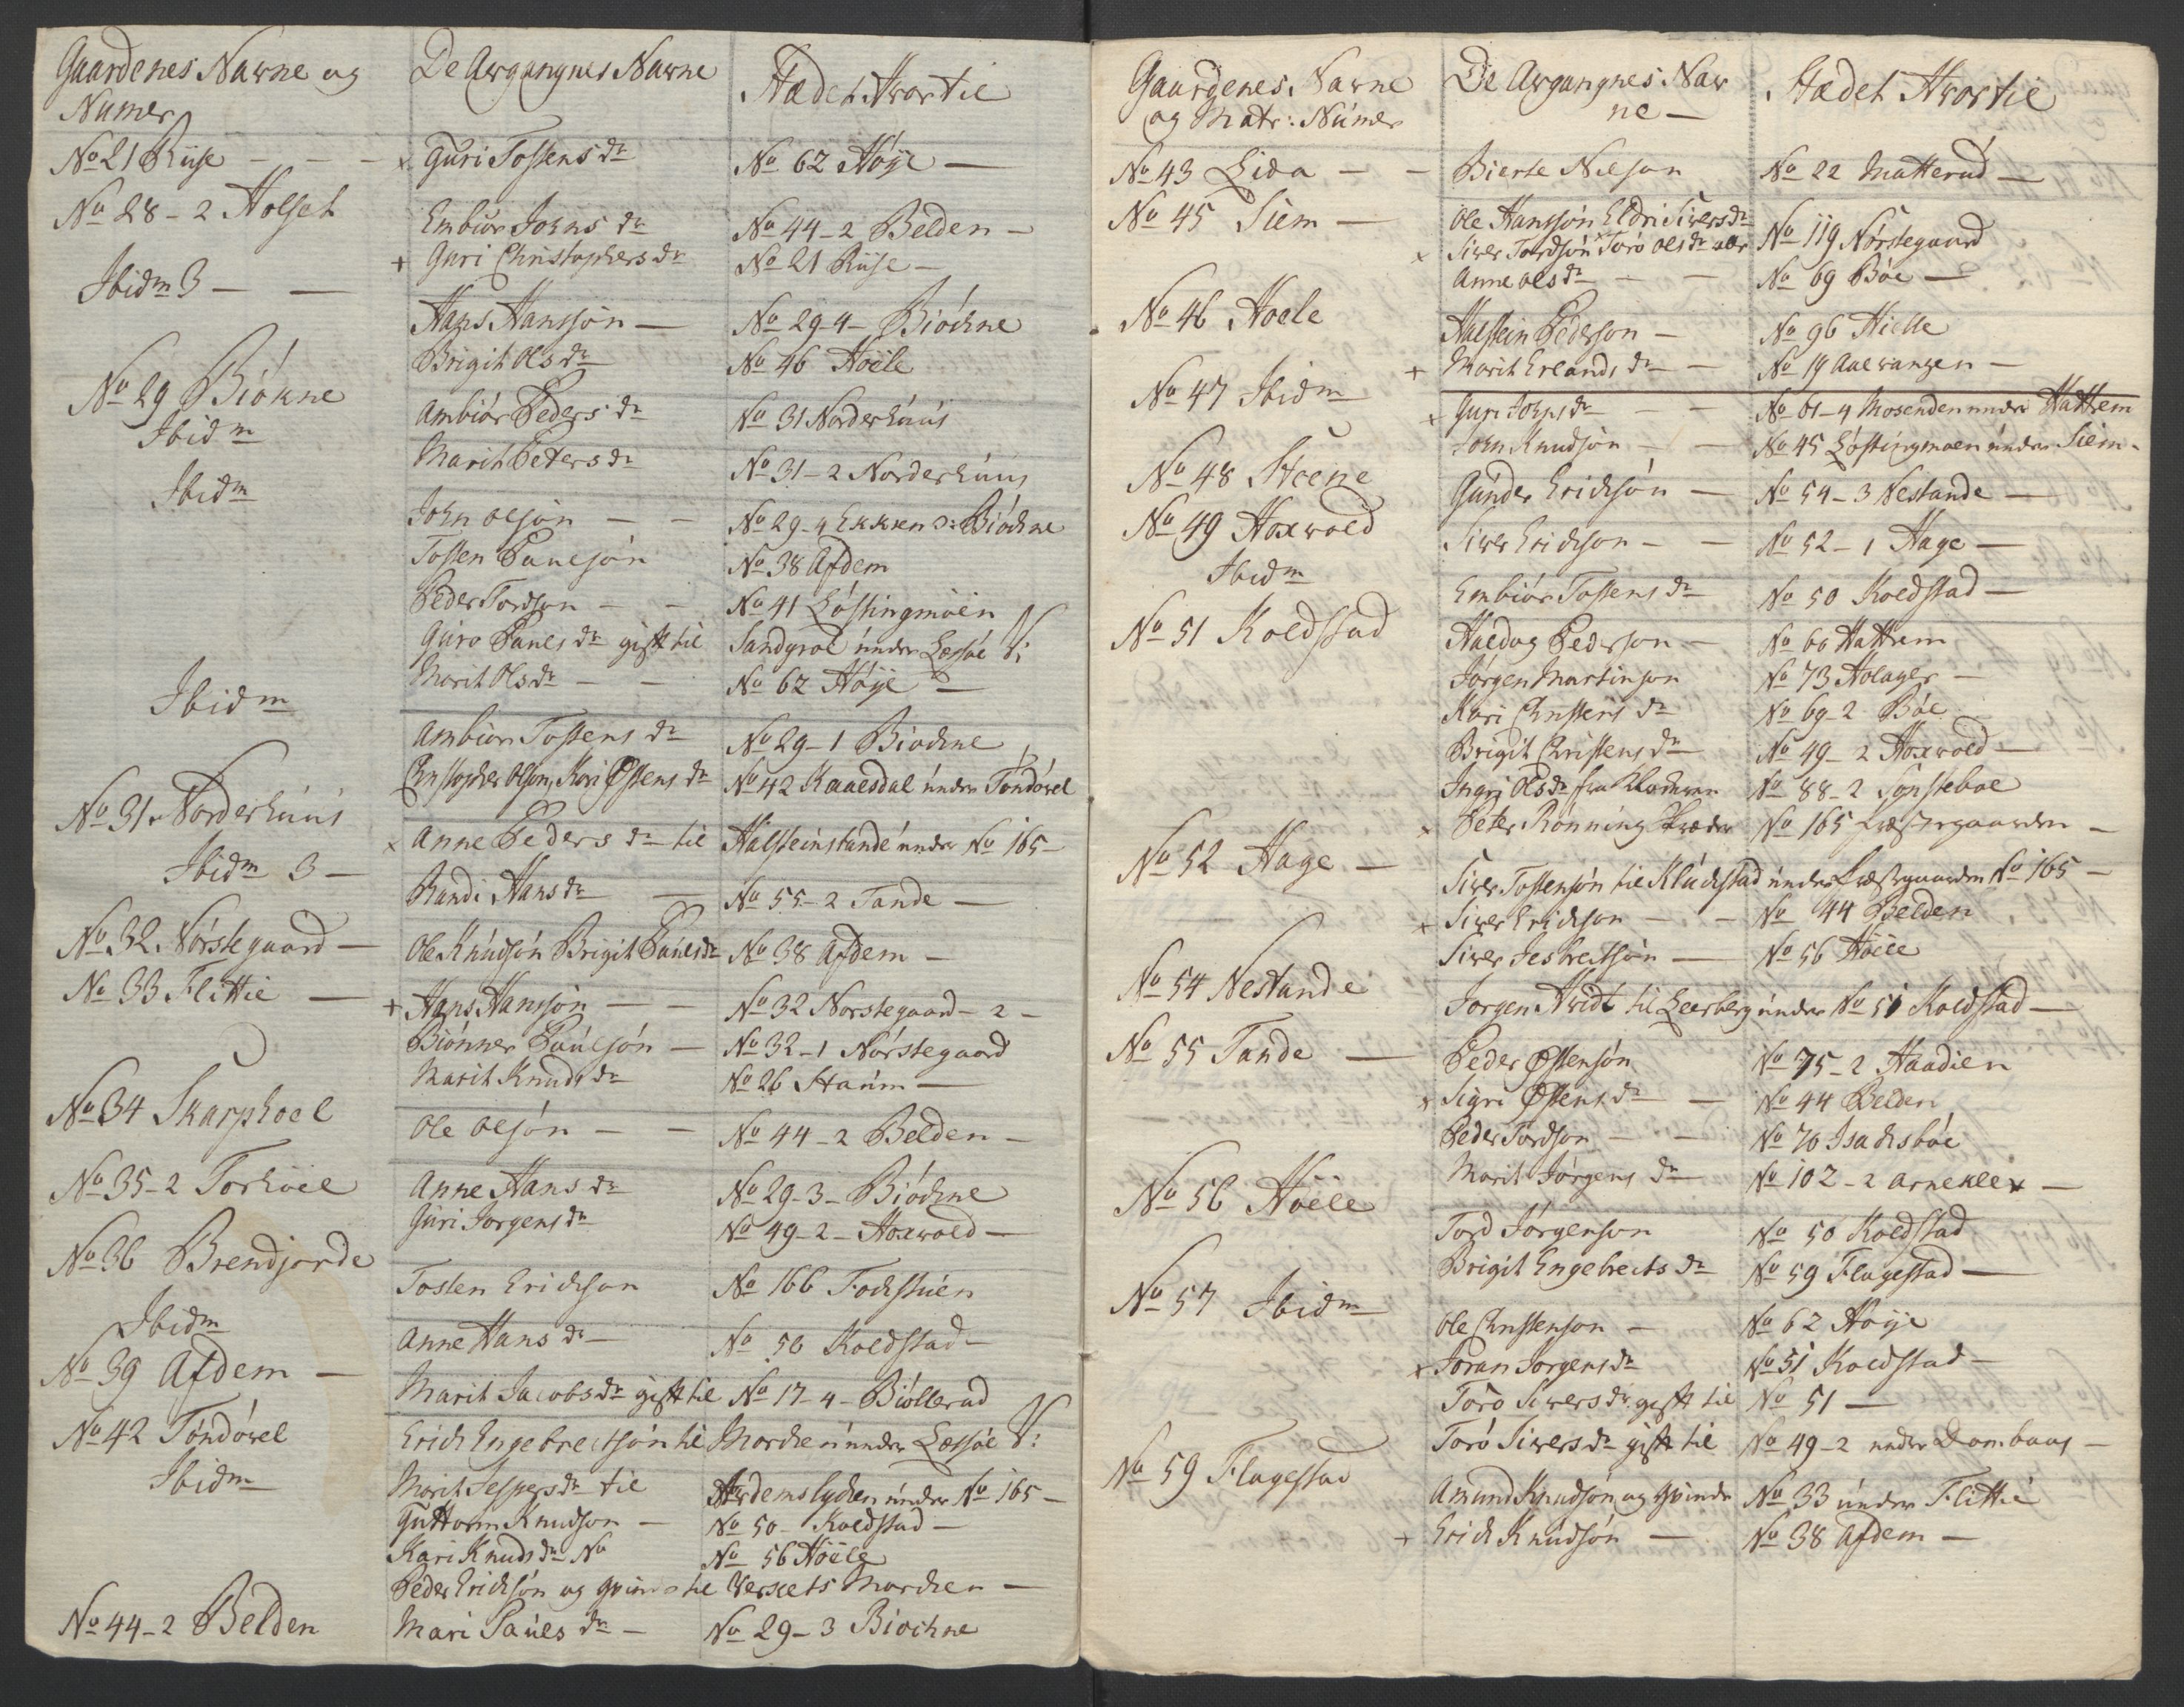 Gaardenes Navne og
Numer
De Avgangnes Navne
Stædet Hvortil
No 21 Riise — — — x Guri Tostens dr No 62 Høÿe —
No 28-2 Holset Embiør Johns dr No 44-2 Belden —
+ Guri Christophers dr No 21 Riise —
Ibidm 3 — — Hans Hansøn — No 29-4 - Biöchne
Brigit Ols dr No 46 Hoële
No 29 Biökne Ambiór Peders dr No 31 Norderhuus
Ibidm Marit Peters dr No 31-2 Norderhuus
Ibidm John Olsøn — — No 29-4 Ekkren ɔ: Biöchne
Tosten Paulsøn No 38 Afdem
Peder Tordsøn — — No 41 Lóftingmöen
Guro Pauls dr gift til Sandgroe under Lessøe
Marit Ols dr — — No 62 Høÿe —
Ibidm Ambiör Tostens dr No 29-1 Biochne
Christopher Olson, Kari Østens dr No 42 Kaalsdal under Tóndóvel
No 31 Norderhuus x Anne Peders dr til Halsteinstande under No 165 —
Ibidm 3 — Randi Hans dr — No 55-2 Tande —
No 32 Nórstegaard — Ole Knudsón Brigit Pauls dr No 38 Afdem —
No 33 Flittie — + Hans Hansøn — — No 32 Norstegaard - 2 -
Biónner Paulsón — No 32-1 Nórstegaard
Marit Knuds dr No 26 Staum —
No 34 Skarphoel Ole Olsón — — No 44-2 Belden —
No 35-2 Torhöel Anne Hans dr No 29-3 - Biöchne
Guri Jorgens dr No 49-2 - Hoxvold —
No 36 Brendjorde Tosten Erichson No 166 Fochstuen
Ibidm Anne Hans dr — No 50 Koldstad —
No 39 Afdem — Marit Jacobs dr gift til No 17-4 - Biöllerud
No 42 Tóndóvel Erich Engebrectsón til Morchen under Lessøe
Ibidm Marit Jespers dr til Avdemslychen under No 165 —
Guttorm Knudson — No 50 - Koldstad —
Kari Knuds dr No No 56 Höële
Peder Erichsón og qvinde til Verkets Marchen —
No 44-2 Belden Mari Pauls dr — No 29-3 Biochne
Gaardenes Navne
og Matr: Numer
De Avgangnes Nav
ne —
Stædet Hvortil
No 43 Lida — — Bierte Nilson No 22 Matterud —
No 45 Siem — Ole Hansøn Eldri Sivers dr
x Siver Tordsøn Toro Ols dr No 119 Nórstegaard
Anne Ols dr — — No 69 Böe —
No 46 Hoele Halstein Pederson — No 96 Hielle
+ Marit Erlands dr — — No 19 Aalvangen —
No 47 Ibidm x Guri Johns dr — — No 61-4 Mosenden under Hattrem
John Knudsøn — — No 45 Lóftingmoen under Siem —
No 48 Steene Gunder Erichsón — No 54-3 Nestande —
No 49 Hoxvold Siver Erichson — — No 52-1 Hage —
Ibidm Embiór Tostens dr No 50 Koldstad —
No 51 Koldstad Haldog Pederson — No 60 Hattrem
Jørgen Martinson No 73 Holager —
Kari Christens dr No 69-2 Böe
Brigit Cristens dr No 49-2 Hoxvold —
Ingri Ols dr fra No 88-2 Tønsteboe
x Peter Ronning Skræder No 165 Præstegaarden —
No 52 Hage — Siver Tostensøn til Kluchstad under Præstegaarden No 165 —
x Siver Erichson — — No 44 Belden
Siver Jesbertsøn — No 56 Höële
No 54 Nestande Jorgen Hvidt til Leerberg under No 51 Koldstad —
No 55 Tande — Peder Østensón No 75-2 Haadien
x Sigri Østens dr — No 44 Belden
Peder Tordson — — No 70 Isachsböe
Marit Jørgens dr No 102-2 Arneklev —
No 56 Höële Tord Jørgenson No 50 Koldstad
Brigit Engebrects dr No 59 Flagestad —
No 57 Ibidm Ole Christenson — No 62 Høÿe
x Joran Jorgens dr No 51 Koldstad —
Toro Sivers dr gift til No 51 —
No 59 Flagestad Toró Sivers dr gift til No 49-2 under Dombaas —
Amund Knudsón og qvinde No 33 under Flittie
+ Erich Knudsón — No 38 Afdem —